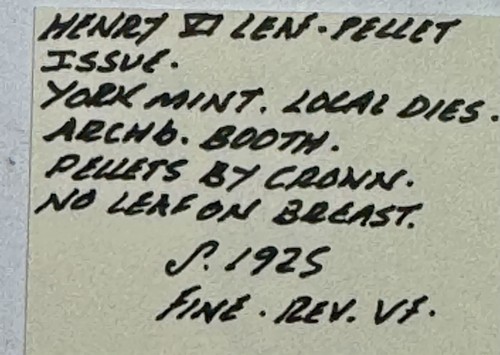 HENRY VI LEAF-PELLET
ISSUE.
YORK MINT. LOCAL DIES.
ARCHb. BOOTH.
PELLETS BY CROWN.
NO LEAF ON BREAST.
S. 1925
FINE. REV. VF.